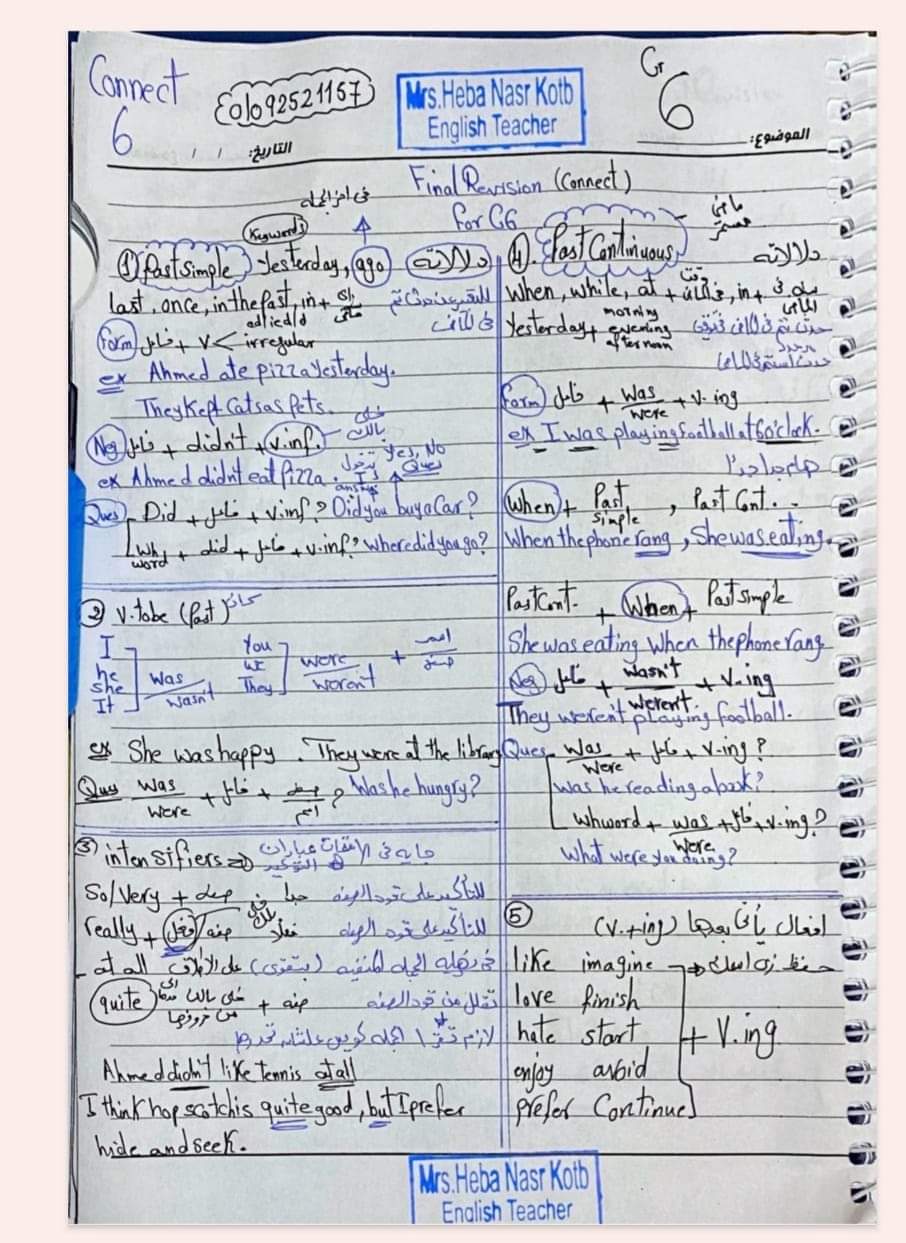 Connect
6
01092521157
Mrs.Heba Nasr Kotb
English Teacher
Gr
6
التاريخ: / /
الموضوع:
Final Revision (Connect)
for G6
(Keywords)
① Past Simple Yesterday, ago دلالاته
last, once, in the past, in +
Form فاعل + V < ed/ied/d irregular
ex Ahmed ate pizza yesterday.
They Kept Cats as Pets.
Neg فاعل + didn't + v.inf.
خلى بالك
ex Ahmed didn't eat pizza.
Yes, No Ques
Ques Did + فاعل + v.inf? Did you buy a Car?
Wh word + did + فاعل + v.inf? where did you go?
② V. to be (Past) كان
I he she It was wasn't
You we They were weren't + اسم صفة
ex She was happy. They were at the library
Ques was were + فاعل + صفة اسم ? Was he hungry?
③ intensifiers
So/Very + صفة جداً للتأكيد على قوة الصفة
really + فعل / صفة فعلاً للتأكيد على قوة الصفة
at all على الإطلاق
quite خلى بالك + صفة تقلل من قوة الصفة
Ahmed didn't like tennis at all
I think hopscotch is quite good, but I prefer
hide and seek.
④. Past Continuous دلالاته
ماضى مستمر
When, while, at + وقت, in +
Yesterday + morning evening afternoon
Form فاعل + was were + v-ing
ex I was playing football at 6 o'clock.
هام جداً
When + Past simple, Past Cont..
When the phone rang, She was eating.
Past Cont. + When + Past simple
She was eating when the phone rang
Neg فاعل + wasn't weren't + V-ing
They weren't playing football.
Ques was were + فاعل + v-ing?
Was he reading a book?
Wh word + was were + فاعل + v-ing?
What were you doing?
⑤ افعال يأتى بعدها (v.+ing)
like imagine
love finish
hate start + V.ing
enjoy avoid
prefer Continue
Mrs.Heba Nasr Kotb
English Teacher